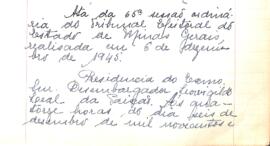 Ata da 65ª sessão ordiná-
ria do Tribunal Eleitoral do
Estado de Minas Gerais,
realisada em 6 de dezem-
bro de 1945.
Presidencia do Exmo.
Snr. Desembargador
Leal da Paixão. Às qua-
torze horas do dia seis de
dezembro de mil novecentos e